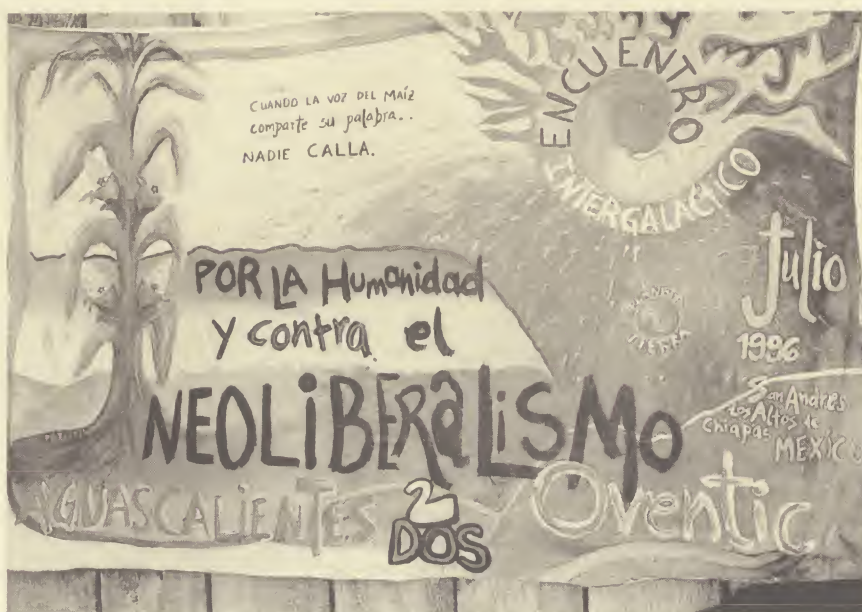 CUANDO LA VOZ DEL MAÍZ
comparte su palabra..
NADIE CALLA.
ENCUENTRO
INTERGALACTICO
Julio
1996
PLANETA
TIERRA
San Andres
Los Altos de
Chiapas
MEXICO
POR LA Humanidad
y contra el
NEOLIBERALISMO
AGUASCALIENTES
2
DOS
Oventic